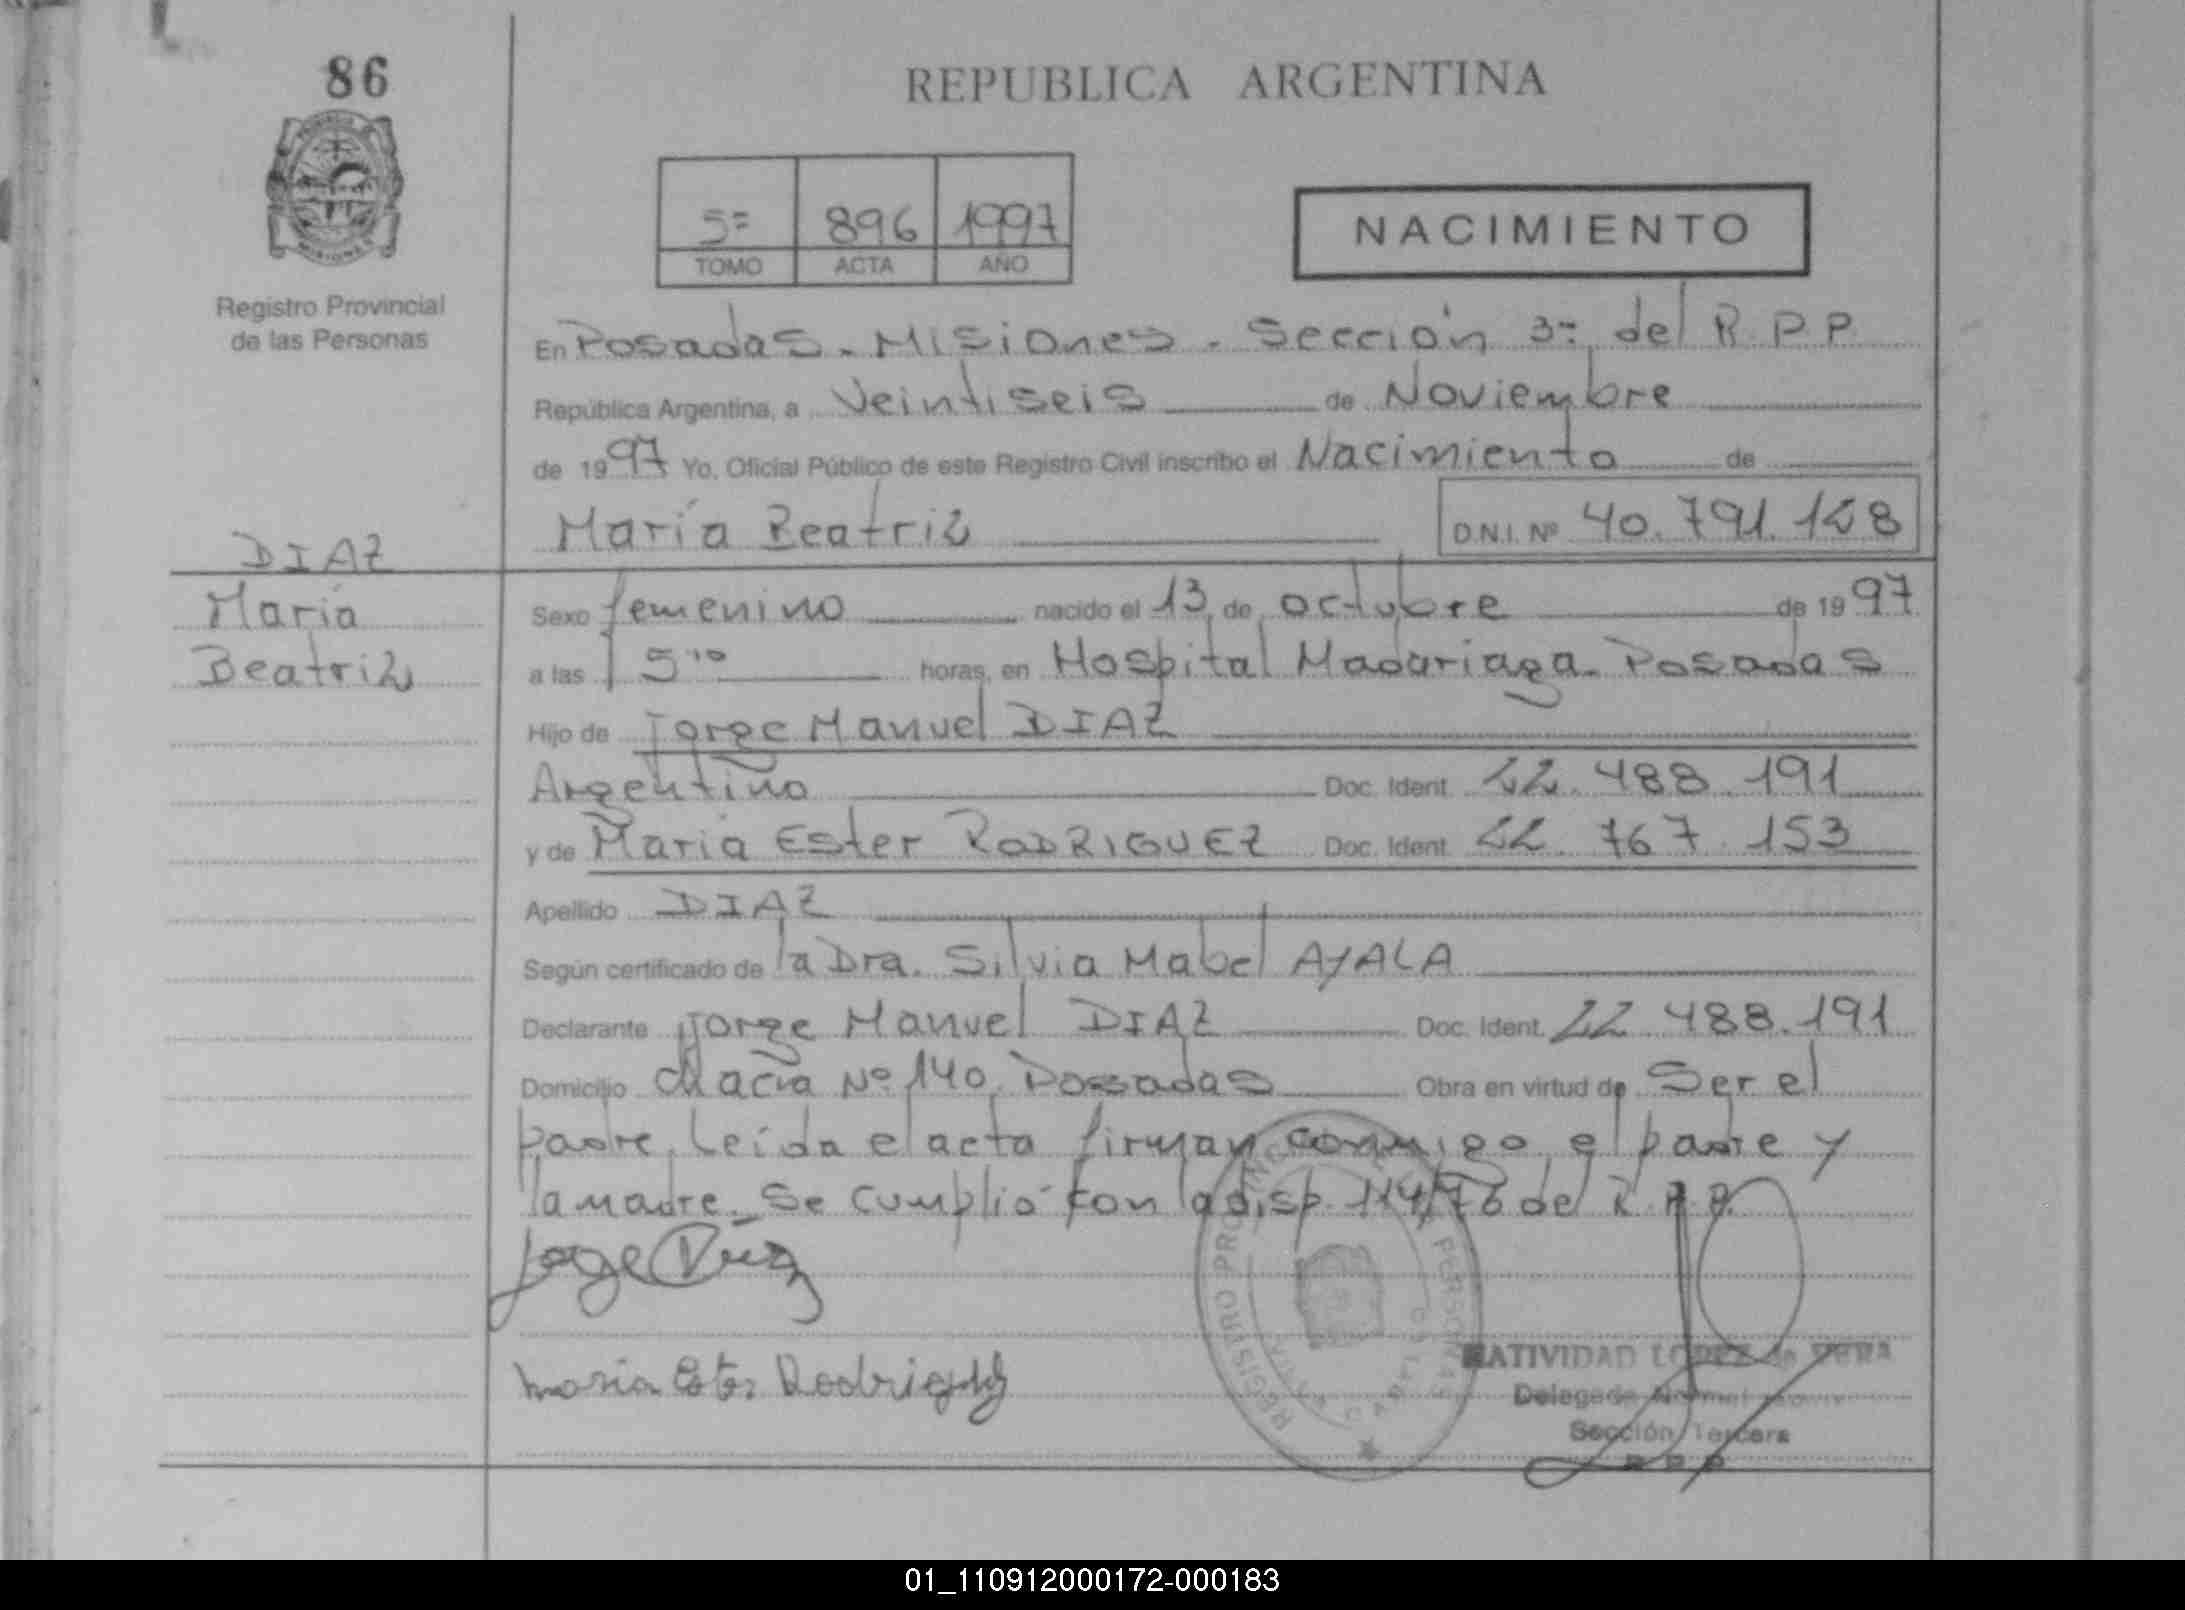 86
REPUBLICA ARGENTINA
5= 896 1997
TOMO ACTA AÑO
NACIMIENTO
Registro Provincial
de las Personas
En Posadas - Misiones. Sección 3= del R.P.P.
República Argentina, a Veintiseis de Noviembre
de 1997 Yo, Oficial Público de este Registro Civil inscribo el Nacimiento de
María Beatriz D.N.I. Nº 40.791.128
DIAZ
María
Beatriz
Sexo femenino nacido el 13 de octubre de 1997
a las 5:10 horas, en Hospital Madariaga. Posadas
Hijo de Jorge Manuel DIAZ
Argentino Doc. Ident. 22.488.191
y de María Ester RODRIGUEZ Doc. Ident. 22.767.153
Apellido DIAZ
Según certificado de la Dra. Silvia Mabel AYALA
Declarante Jorge Manuel DIAZ Doc. Ident. 22.488.191
Domicilio Chacra Nº 140. Posadas Obra en virtud de Ser el
padre. Leída el acta firman conmigo el padre y
la madre. Se cumplió con la disp. 114/76 del R.P.P.
Jorge Diaz
REGISTRO PROVINCIAL DE LAS PERSONAS
Maria Ester Rodriguez
NATIVIDAD LOPEZ de VERA
Sección Tercera
R.P.P.
01_110912000172-000183